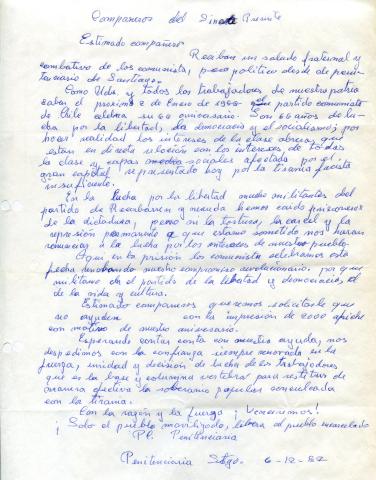 Compañeros del Presente
Estimado compañero
Reciban un saludo fraternal y
combativo de los comunista, preso político desde de peni-
tenciario de Santiago.
Como Uds. y todos los trabajadores de nuestra patria
saben el proximo 2 de Enero de el partido comunista
de Chile celebra su 60 aniversario. Son 65 años de lu-
cha por la libertad, la democracia y el socialismo; por
hacer realidad los intereses de la clase obrera que
estan en directa relación con los intereses de todas
la clase y capas medias sociales afectada por el
gran capital representado hoy por la tirania facista
En la lucha por la libertad mucho militantes del
partido de Recabarren y Neruda hemos caido prisioneros
de la dictadura, pero ni la tortura, la carcel y la
represión permanente a que estamo sometido nos haran
renunciar a la lucha por los intereses de nuestro pueblo.
Aqui en ta prisión los comunista celebramos esta
fecha renobando nuestro compromiso revolucionario, por que
militamo en el partido de la libertad y democracia, el
de la vida y cultura.
Estimado compañeros queremos solicitarle que
no ayuden con la impresión de 2000 afiche
con motivo de nuestro aniversario.
Esperando contar conta con nuestra ayuda, nos
despedimos con la confianza siempre renovada en la
fuerza, unidad y decisión de lucha de los trabajadores
que es la base y columna vertebral para restituir de
manera efectiva la soberania popular conculcada
con la tirania.
Con la razón y la fuerza ¡Venceremos!
¡Solo el pueblo movilizado, libera al pueblo encarcelado
PP. Penitenciaria
Penitenciaria Stgo. 6-12-